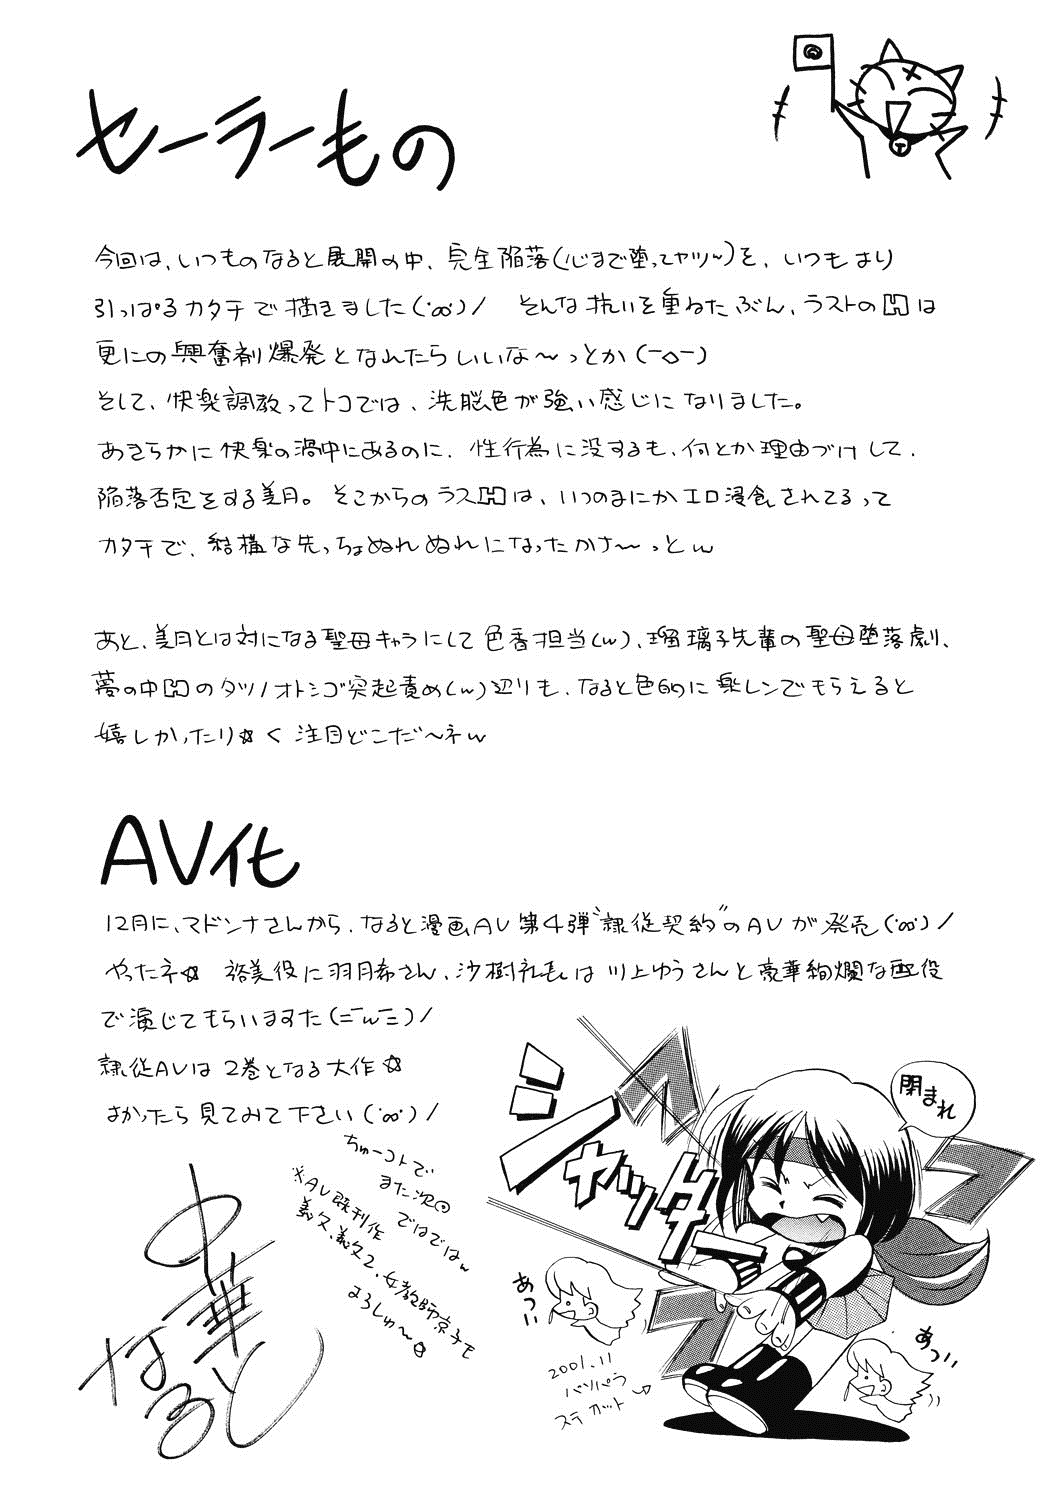 セーラーもの
今回は、いつものなると展開の中、完全陥落(心まで堕ってヤツ~)を、いつもより
引っぱるカタチで描きました(˙ꝏ˙)/ そんな抗いを重ねたぶん、ラストのHは
更にの興奮剤爆発となれたらいいな~っとか(ー◇ー)
そして、快楽調教ってトコでは、洗脳色が強い感じになりました。
あきらかに快楽の渦中にあるのに、性行為に没するも、何とか理由づけして、
陥落否定をする美月。そこからのラスHは、いつのまにかエロ浸食されてるって
カタチで、結構な先っちょぬれぬれになったかさ~っとw
あと、美月とは対になる聖母キャラにして色香担当(w)、瑠璃子先輩の聖母堕落劇、
夢の中Hのタツノオトシゴ突起責め(w)辺りも、なると色的に楽しンでもらえると
嬉しかったり☆く 注目どこだ~ネw
AV化
12月に、マドンナさんから、なると漫画AV第4弾"隷従契約"のAVが発売(˙ꝏ˙)/
やったネ☆ 裕美役に羽月希さん、沙樹礼もは川上ゆうさんと豪華絢爛な配役
で演じてもらいますた(=ーwー=)/
隷従AVは2巻となる大作☆
よかったら見てみて下さい(˙ꝏ˙)/
ちゅーコトで
また次回
ではではw
※AV既刊作
義父、義父2、女教師京子も
よろしゅ~☆
中華
なると
シャッター
閉まれ
あつい
あつい
2001.11
パソパラ
ステカット